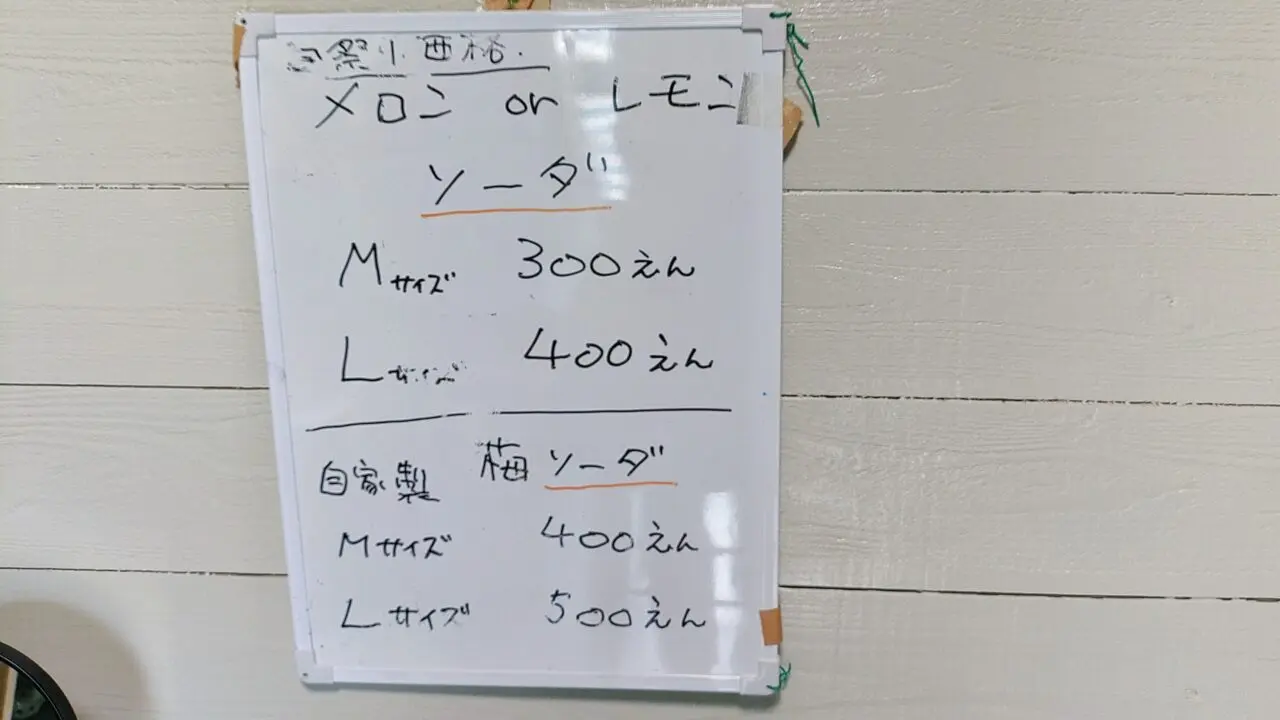 祭り 価格.
メロン or レモン
ソーダ
Mサイズ 300えん
Lサイズ 400えん
自家製 梅ソーダ
Mサイズ 400えん
Lサイズ 500えん